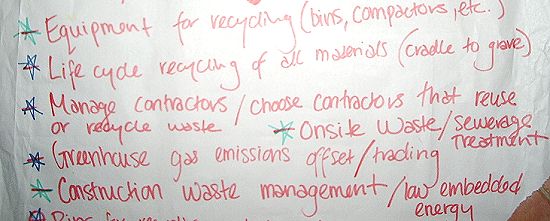 Equipment for recycling (bins, compactors, etc.)
Life cycle recycling of all materials (cradle to grave)
Manage contractors / choose contractors that reuse
or recycle waste
Onsite Waste / sewerage
Treatment
Greenhouse gas emissions offset / trading
Construction waste management / low embedded
energy